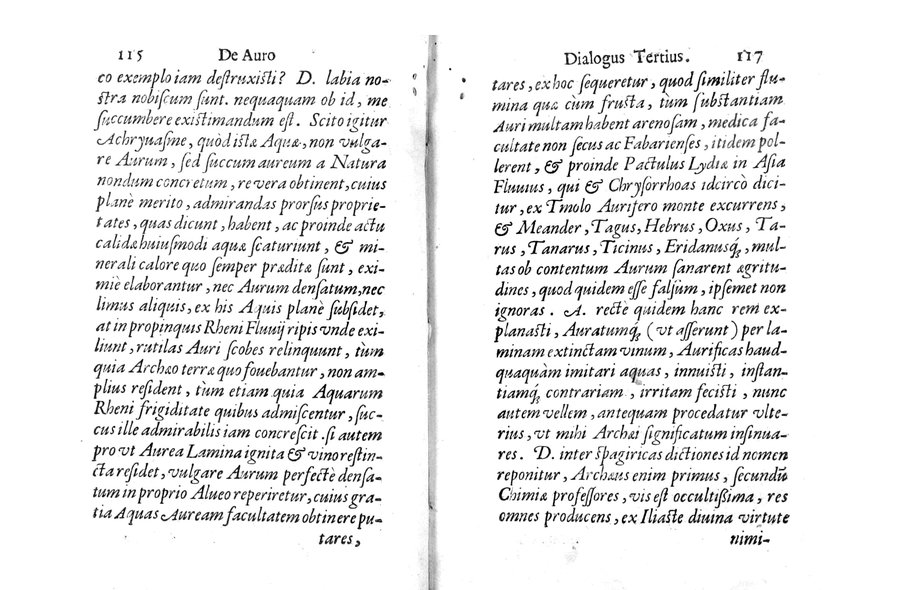 115 De Auro
co exemplo iam destruxisti? D. labia no-
stra nobiscum sunt. nequaquam ob id, me
succumbere existimandum est. Scito igitur
Achryuasme, quòd istæ Aquæ, non vulga-
re Aurum, sed succum aureum a Natura
nondum concretum, re vera obtinent, cuius
planè merito, admirandas prorsus proprie-
tates, quas dicunt, habent, ac proinde actu
calidæ huiusmodi aquæ scaturiunt, & mi-
nerali calore quo semper præditæ sunt, exi-
miè elaborantur, nec Aurum densatum, nec
limus aliquis, ex his Aquis planè subsidet,
at in propinquis Rheni Fluuij ripis vnde exi-
liunt, rutilas Auri scobes relinquunt, tùm
quia Archæo terræ quo fouebantur, non am-
plius resident, tùm etiam quia Aquarum
Rheni frigiditate quibus admiscentur, suc-
cus ille admirabilis iam concrescit. si autem
pro vt Aurea Lamina ignita & vino restin-
cta residet, vulgare Aurum perfectè densa-
tum in proprio Alueo reperiretur, cuius gra-
tia Aquas Auream facultatem obtinere pu-
tares,
Dialogus Tertius. 117
tares, ex hoc sequeretur, quod similiter flu-
mina quæ cùm frusta, tùm substantiam
Auri multam habent arenosam, medica fa-
cultate non secus ac Fabarienses, itidem pol-
lerent, & proinde Pactulus Lydiæ in Asia
Fluuius, qui & Chrysorrhoas idcircò dici-
tur, ex Tmolo Aurifero monte excurrens,
& Meander, Tagus, Hebrus, Oxus, Ta-
rus, Tanarus, Ticinus, Eridanusq́;, mul-
tas ob contentum Aurum sanarent ægritu-
dines, quod quidem esse falsum, ipsemet non
ignoras. A. rectè quidem hanc rem ex-
planasti, Auratumq́; (vt asserunt) per la-
minam extinctam vinum, Aurificas haud-
quaquàm imitari aquas, innuisti, instan-
tiamq́; contrariam, irritam fecisti, nunc
autem vellem, antequam procedatur vlte-
rius, vt mihi Archæi significatum insinua-
res. D. inter spagiricas dictiones id nomen
reponitur, Archæus enim primus, secundũ
Chimiæ professores, vis est occultissima, res
omnes producens, ex Iliaste diuina virtute
nimi-